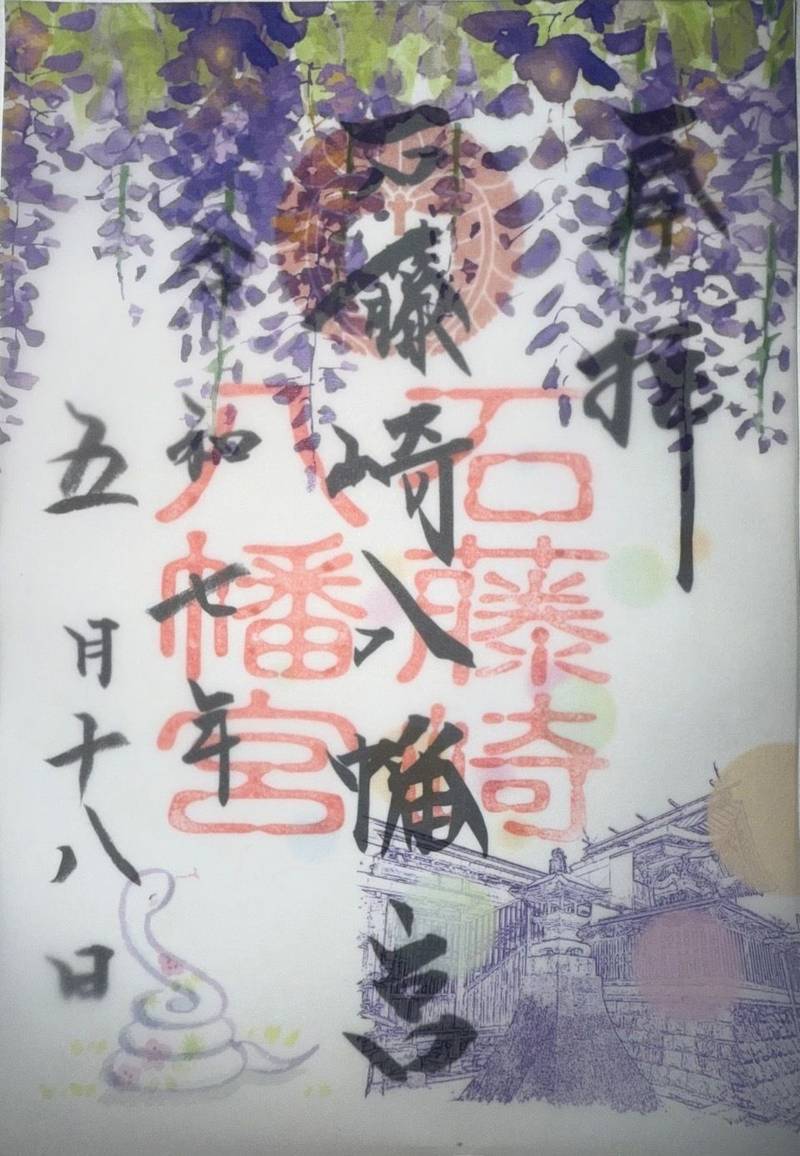 奉拝
石藤崎八幡宮
石藤崎
八幡宮
令和七年
五月十八日